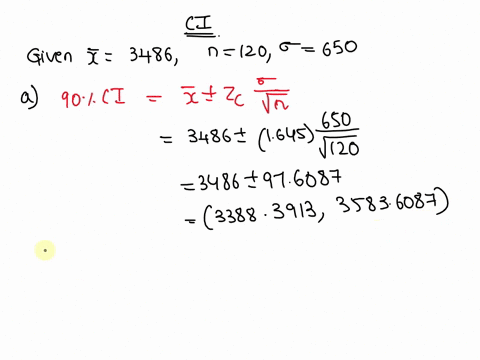 CI
Given x̄ = 3486, n = 120, σ = 650
a) 90% CI = x̄ ± Zc σ/√n
= 3486 ± (1.645) 650/√120
= 3486 ± 97.6087
= (3388.3913, 3583.6087)